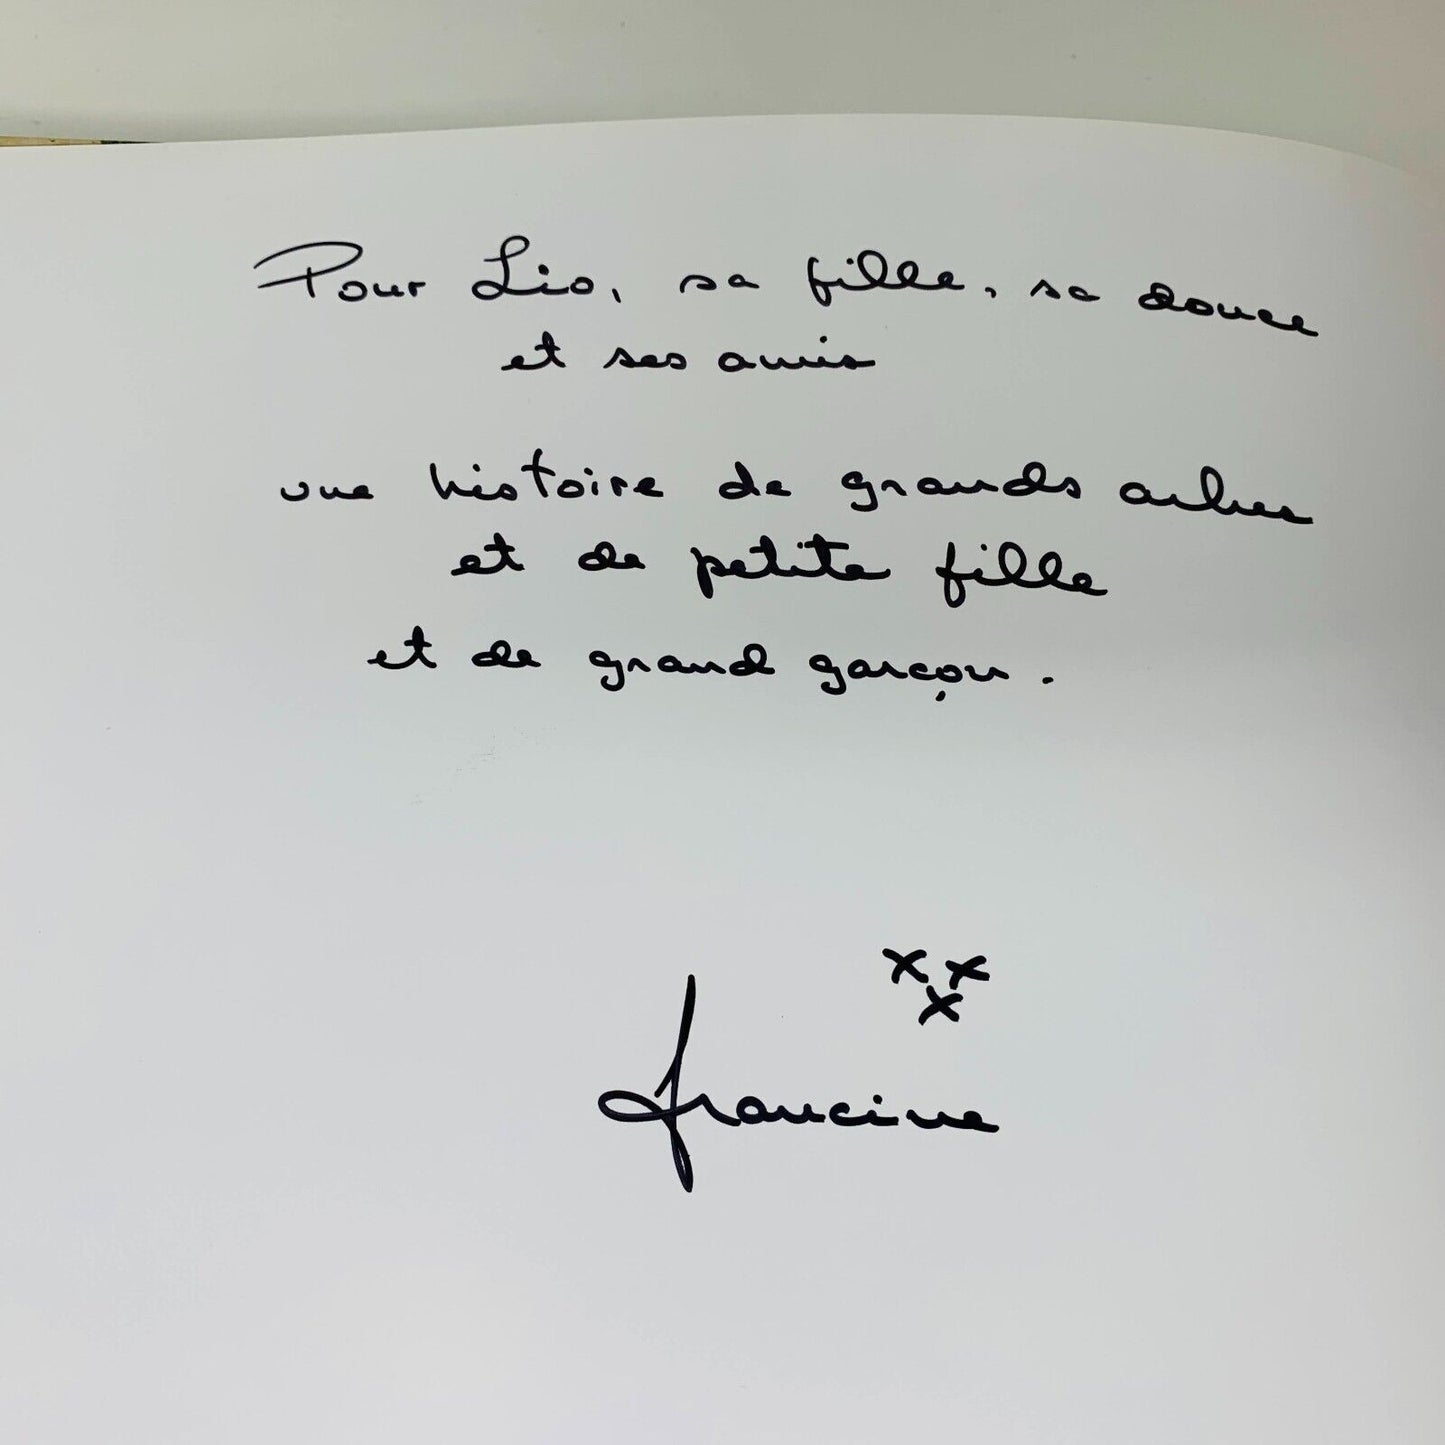 Pour Lio, sa fille, sa douce
et ses amis
une histoire de grands arbres
et de petite fille
et de grand garçon.
x x
x
Francine